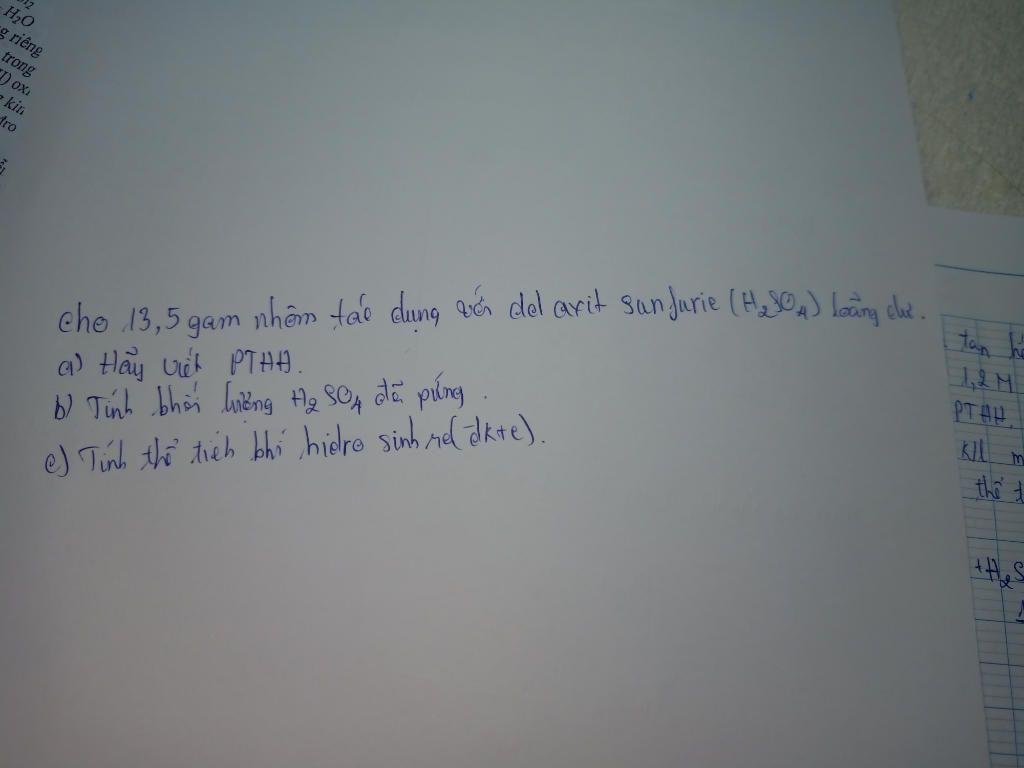 H₂O
g riêng
trong
Cho 13,5 gam nhôm tác dụng với dd axit sunfuric (H₂SO₄) loãng dư.
a) Hãy viết PTHH.
b) Tính khối lượng H₂SO₄ đã pứng.
c) Tính thể tích khí hidro sinh ra (đktc).
tan
1,2M
PTHH.
thể t
+H₂S